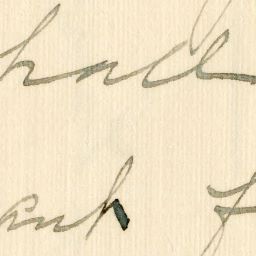 hall
ank f